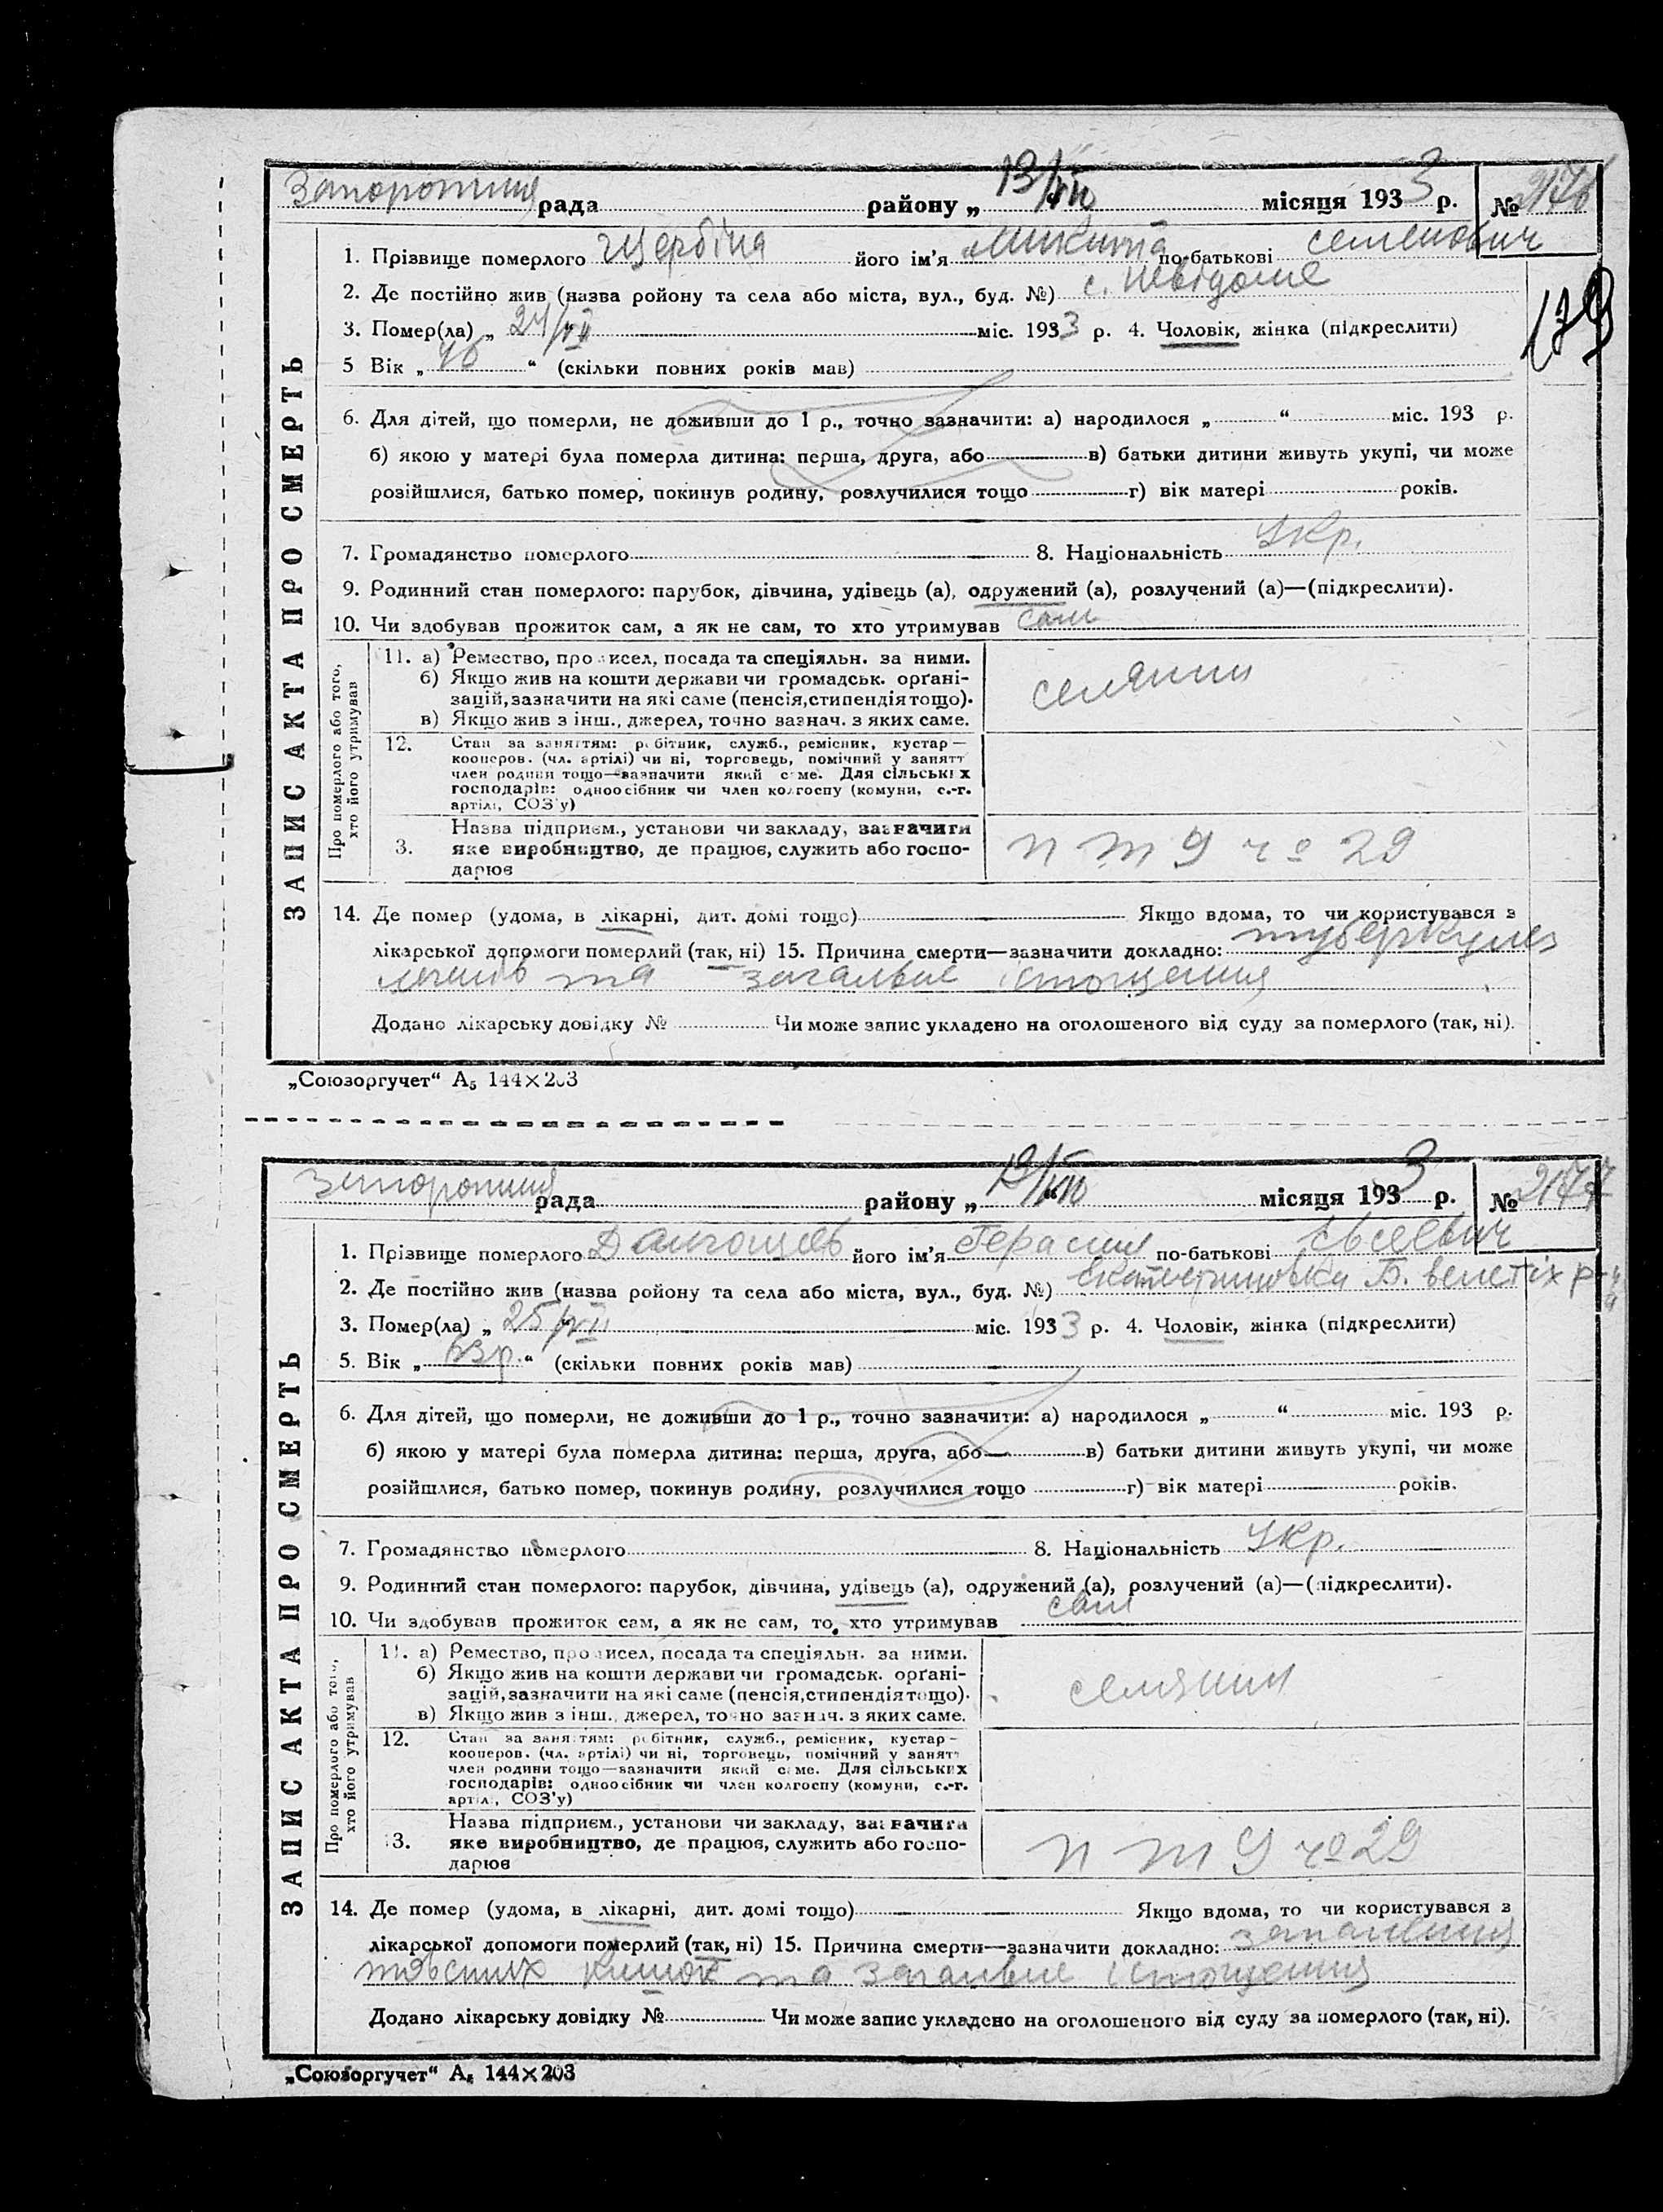 рада району „ 13/VII місяця 1933 р. № 2176
1. Прізвище померлого Щербина його ім'я Микита по-батькові Семенович
2. Де постійно жив (назва ройону та села або міста, вул., буд. №) с. невідоме
179
3. Помер(ла) „ 24/VII міс. 1933 р. 4. Чоловік, жінка (підкреслити)
5 Вік „ “ (скільки повних років мав)
6. Для дітей, що померли, не доживши до 1 р., точно зазначити: а) народилося „ “ міс. 193 р.
б) якою у матері була померла дитина: перша, друга, або в) батьки дитини живуть укупі, чи може
розійшлися, батько помер, покинув родину, розлучилися тощо г) вік матері років.
7. Громадянство померлого 8. Національність Укр.
9. Родинний стан померлого: парубок, дівчина, удівець (а), одружений (а), розлучений (а)—(підкреслити).
10. Чи здобував прожиток сам, а як не сам, то хто утримував сам
ЗАПИС АКТА ПРО СМЕРТЬ
Про померлого або того, хто його утримував
11. а) Ремество, промисел, посада та спеціяльн. за ними.
б) Якщо жив на кошти держави чи громадськ. орґані-
зацій, зазначити на які саме (пенсія, стипендія тощо).
в) Якщо жив з інш., джерел, точно зазнач. з яких саме.
селянин
12. Стан за заняттям: робітник, служб., ремісник, кустар—
кооперов. (чл. артілі) чи ні, торговець, помічний у занятт
член родини тощо—зазначити який саме. Для сільських
господарів: одноосібник чи член колгоспу (комуни, с.-г.
артілі, СОЗ'у)
3. Назва підприєм., установи чи закладу, зазначити
яке виробництво, де працює, служить або госпо-
дарює
29
14. Де помер (удома, в лікарні, дит. домі тощо) Якщо вдома, то чи користувався з
лікарської допомоги померлий (так, ні) 15. Причина смерти—зазначити докладно: туберкульоз
та загальне істощения
Додано лікарську довідку № Чи може запис укладено на оголошеного від суду за померлого (так, ні).
„Союзоргучет“ А₅ 144×203
рада району „ місяця 1933 р. № 2177
1. Прізвище померлого його ім'я Герасим по-батькові Євсеевич
2. Де постійно жив (назва ройону та села або міста, вул., буд. №) Екатериновка Б.
3. Помер(ла) „ 25/VII міс. 1933 р. 4. Чоловік, жінка (підкреслити)
5. Вік „ “ (скільки повних років мав)
6. Для дітей, що померли, не доживши до 1 р., точно зазначити: а) народилося „ “ міс. 193 р.
б) якою у матері була померла дитина: перша, друга, або в) батьки дитини живуть укупі, чи може
розійшлися, батько помер, покинув родину, розлучилися тощо г) вік матері років.
7. Громадянство померлого 8. Національність Укр.
9. Родинний стан померлого: парубок, дівчина, удівець (а), одружений (а), розлучений (а)—(підкреслити).
10. Чи здобував прожиток сам, а як не сам, то хто утримував сам
ЗАПИС АКТА ПРО СМЕРТЬ
Про померлого або того, хто його утримував
11. а) Ремество, промисел, посада та спеціяльн. за ними.
б) Якщо жив на кошти держави чи громадськ. орґані-
зацій, зазначити на які саме (пенсія, стипендія тощо).
в) Якщо жив з інш., джерел, точно зазнач. з яких саме.
селянин
12. Стан за заняттям: робітник, служб., ремісник, кустар—
кооперов. (чл. артілі) чи ні, торговець, помічний у занятт
член родини тощо—зазначити який саме. Для сільських
господарів: одноосібник чи член колгоспу (комуни, с.-г.
артілі, СОЗ'у)
3. Назва підприєм., установи чи закладу, зазначити
яке виробництво, де працює, служить або госпо-
дарює
29
14. Де помер (удома, в лікарні, дит. домі тощо) Якщо вдома, то чи користувався з
лікарської допомоги померлий (так, ні) 15. Причина смерти—зазначити докладно: запалення
товстих кишок та загальне істощения
Додано лікарську довідку № Чи може запис укладено на оголошеного від суду за померлого (так, ні).
„Союзоргучет“ А₅ 144×203